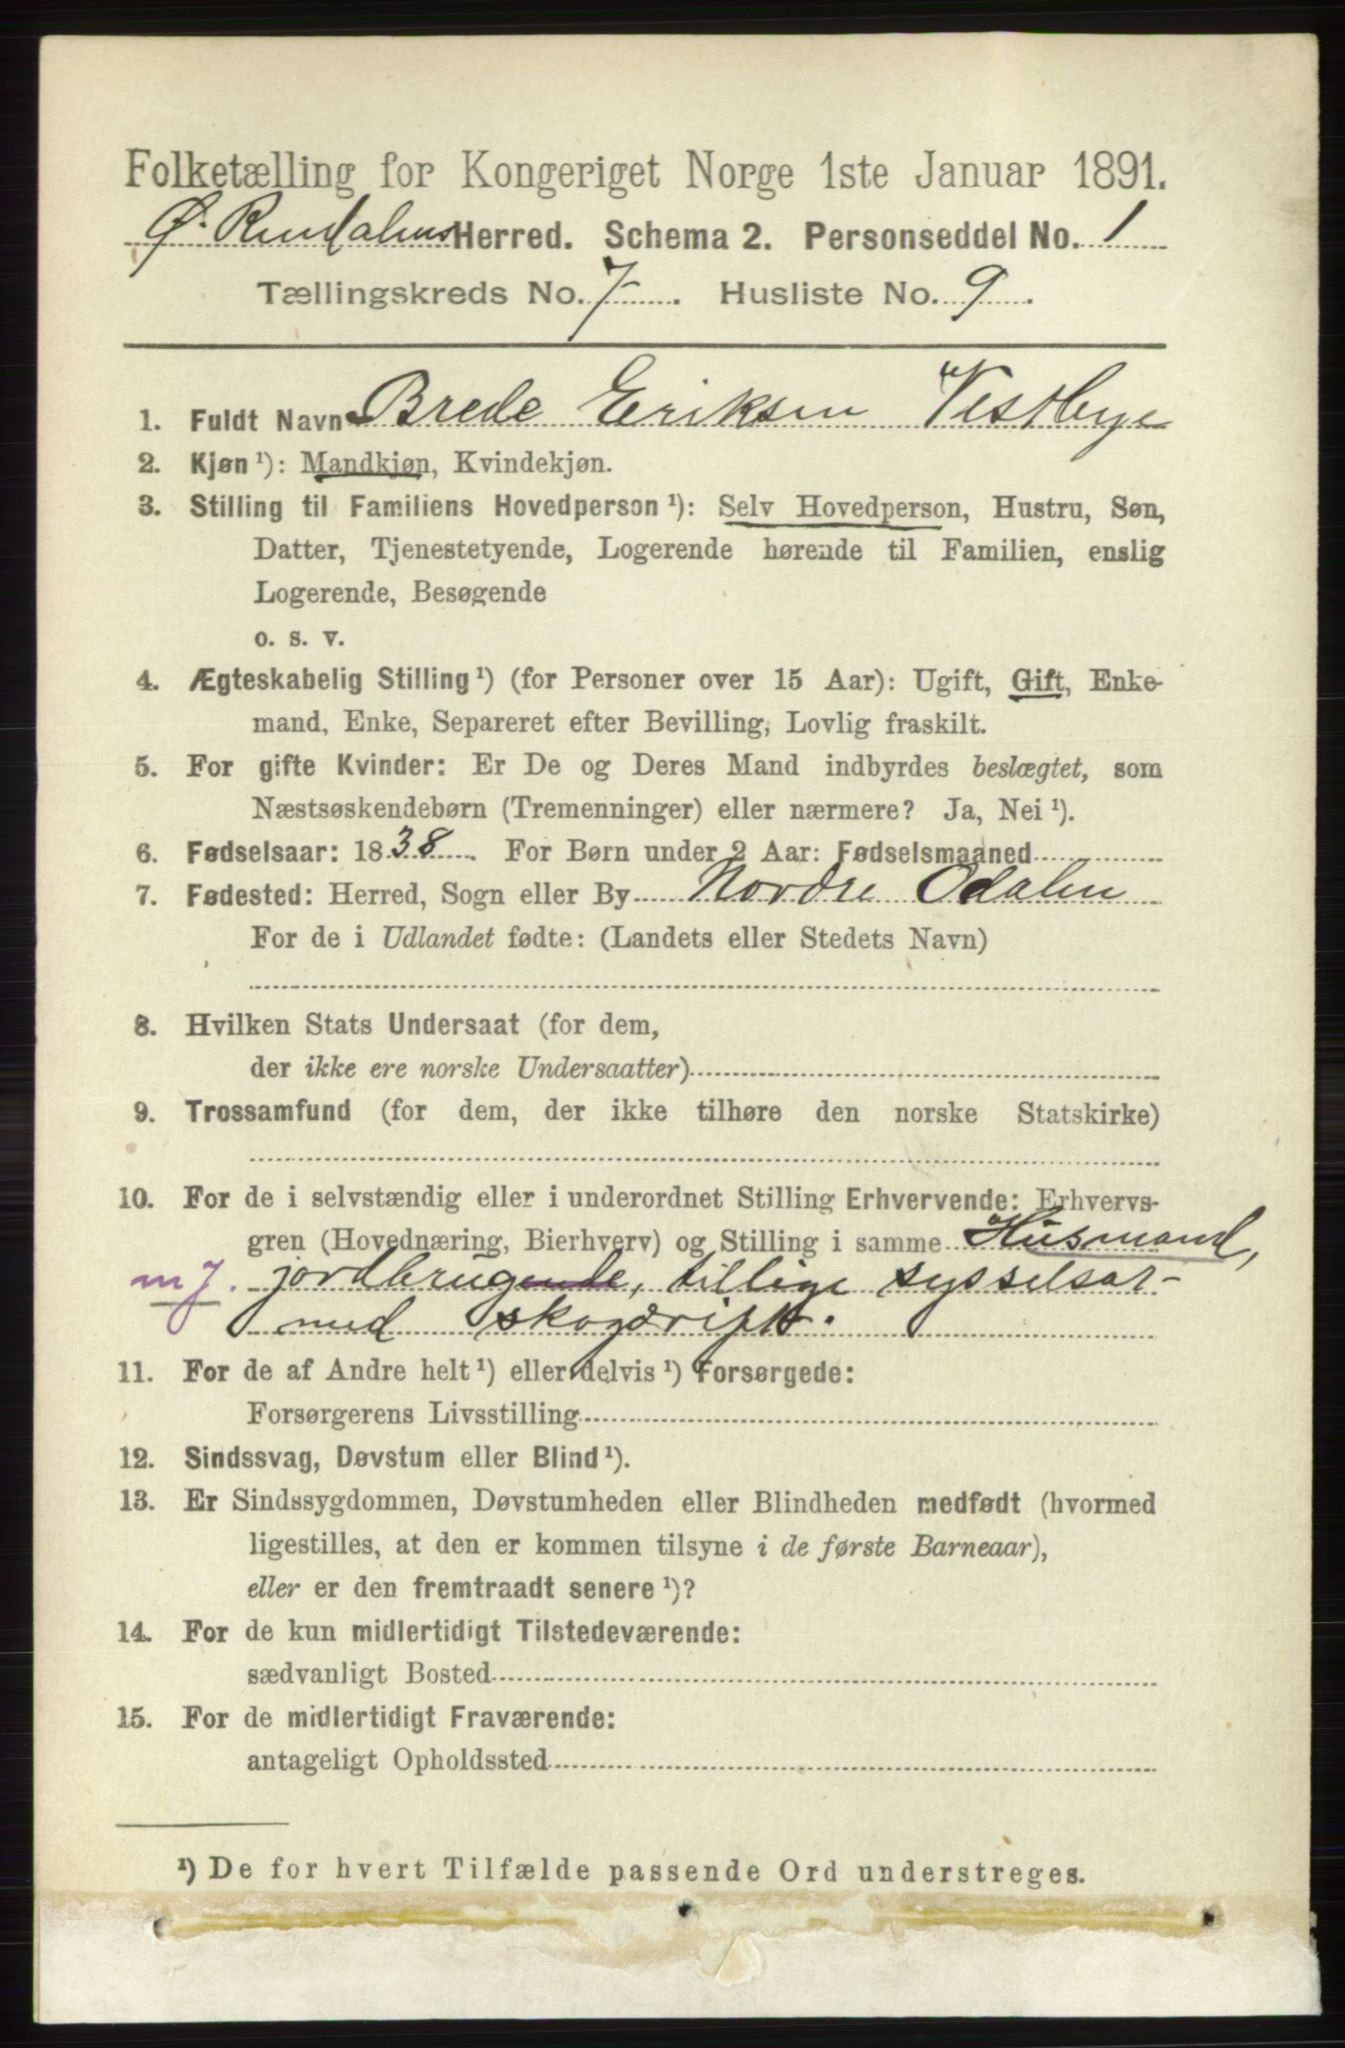 Folketælling for Kongeriget Norge 1ste Januar 1891.
Ø. Rendalens Herred. Schema 2. Personseddel No. 1
Tællingskreds No. 7. Husliste No. 9.
1. Fuldt Navn Brede Eriksen Vestbye
2. Kjøn ¹): Mandkjøn, Kvindekjøn.
3. Stilling til Familiens Hovedperson ¹): Selv Hovedperson, Hustru, Søn,
Datter, Tjenestetyende, Logerende hørende til Familien, enslig
Logerende, Besøgende
o. s. v.
4. Ægteskabelig Stilling ¹) (for Personer over 15 Aar): Ugift, Gift, Enke-
mand, Enke, Separeret efter Bevilling, Lovlig fraskilt.
5. For gifte Kvinder: Er De og Deres Mand indbyrdes beslægtet, som
Næstsøskendebørn (Tremenninger) eller nærmere? Ja, Nei ¹).
6. Fødselsaar: 1838. For Børn under 2 Aar: Fødselsmaaned
7. Fødested: Herred, Sogn eller By Nordre Odalen
For de i Udlandet fødte: (Landets eller Stedets Navn)
8. Hvilken Stats Undersaat (for dem,
der ikke ere norske Undersaatter)
9. Trossamfund (for dem, der ikke tilhøre den norske Statskirke)
10. For de i selvstændig eller i underordnet Stilling Erhvervende: Erhvervs-
gren (Hovednæring, Bierhverv) og Stilling i samme Husmand,
m j. jordbrugende, tillige sysselsat
med skogdrift.
11. For de af Andre helt ¹) eller delvis ¹) Forsørgede:
Forsørgerens Livsstilling
12. Sindssvag, Døvstum eller Blind ¹).
13. Er Sindssygdommen, Døvstumheden eller Blindheden medfødt (hvormed
ligestilles, at den er kommen tilsyne i de første Barneaar),
eller er den fremtraadt senere ¹)?
14. For de kun midlertidigt Tilstedeværende:
sædvanligt Bosted
15. For de midlertidigt Fraværende:
antageligt Opholdssted
¹) De for hvert Tilfælde passende Ord understreges.